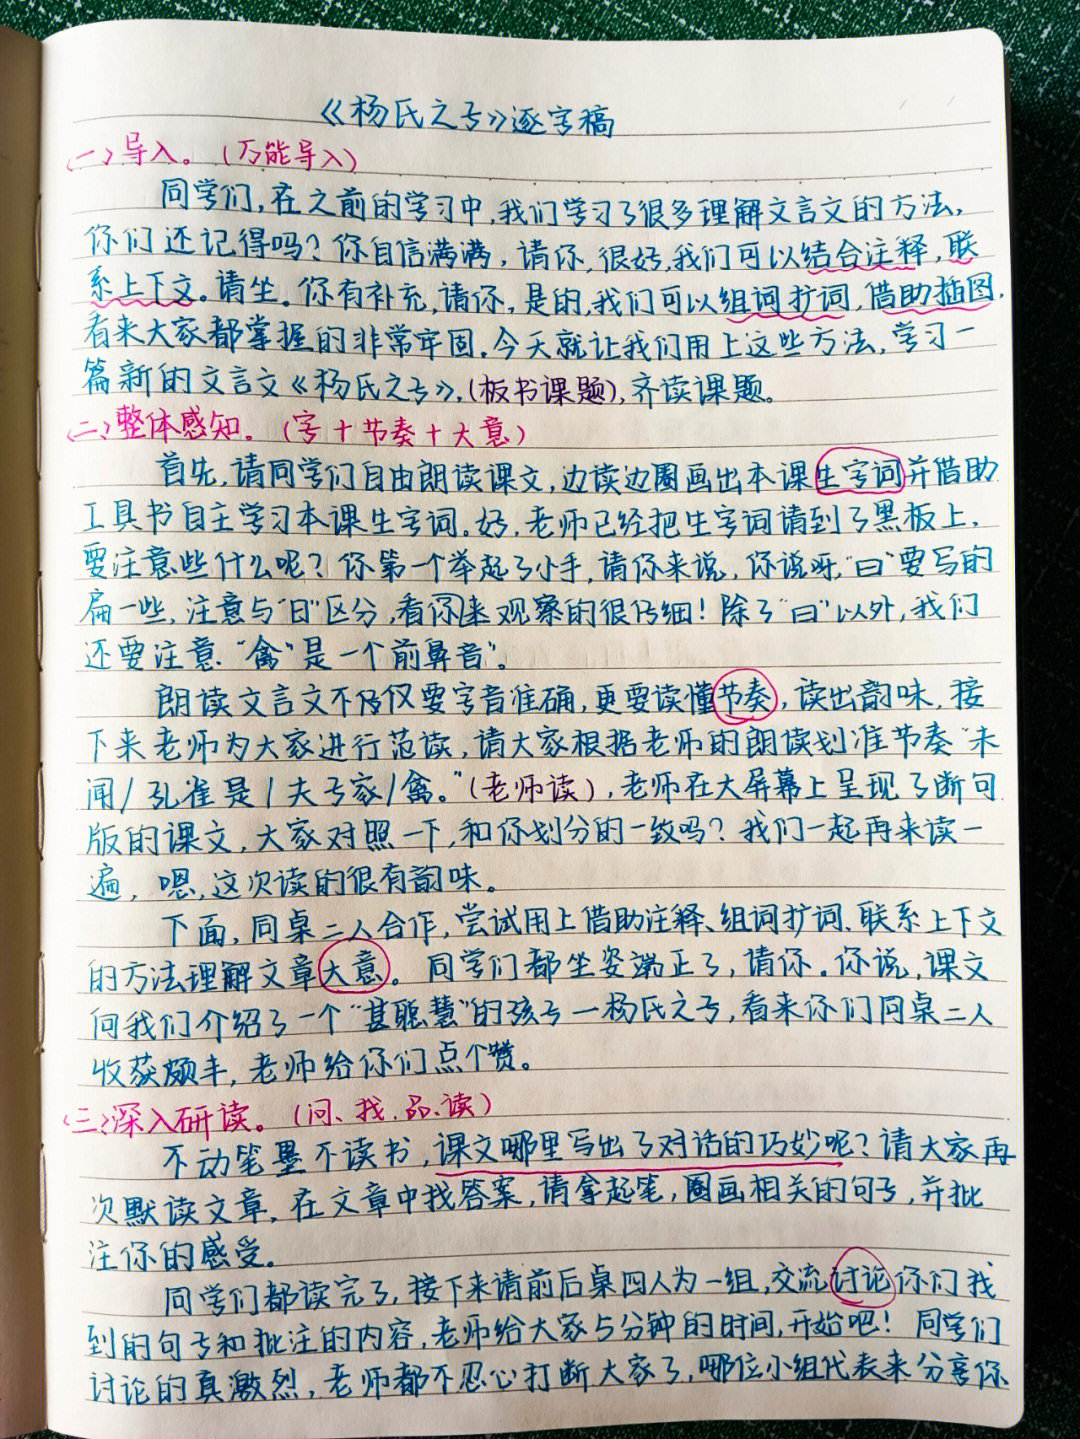 《杨氏之子》逐字稿
(一)导入。(万能导入)
同学们,在之前的学习中,我们学习了很多理解文言文的方法,
你们还记得吗?你自信满满,请你,很好,我们可以结合注释,联
系上下文。请坐。你有补充,请你,是的,我们可以组词扩词,借助插图,
看来大家都掌握的非常牢固,今天就让我们用上这些方法,学习一
篇新的文言文《杨氏之子》,(板书课题),齐读课题。
(二)整体感知。(字+节奏+大意)
首先,请同学们自由朗读课文,边读边圈画出本课生字词并借助
工具书自主学习本课生字词。好,老师已经把生字词请到了黑板上,
要注意些什么呢?你第一个举起了小手,请你来说,你说呀,"曰"要写的
扁一些,注意与"日"区分,看你观察的很仔细!除了"曰"以外,我们
还要注意"禽"是一个前鼻音"。
朗读文言文不仅要字音准确,更要读懂节奏,读出韵味,接
下来老师为大家进行范读,请大家根据老师的朗读划准节奏"未
闻/孔雀是/夫子家/禽。"(老师读),老师在大屏幕上呈现了断句
版的课文,大家对照一下,和你划分的一致吗?我们一起再来读一
遍,嗯,这次读的很有韵味。
下面,同桌二人合作,尝试用上借助注释、组词扩词、联系上下文
的方法理解文章大意。同学们都坐姿端正了,请你。你说,课文
向我们介绍了一个"甚聪慧"的孩子—杨氏之子,看来你们同桌二人
收获颇丰,老师给你们点个赞。
(三)深入研读。(问、找、品、读)
不动笔墨不读书,课文哪里写出了对话的巧妙呢?请大家再
次默读文章,在文章中找答案,请拿起笔,圈画相关的句子,并批
注你的感受。
同学们都读完了,接下来请前后桌四人为一组,交流讨论你们找
到的句子和批注的内容,老师给大家5分钟的时间,开始吧!同学们
讨论的真激烈,老师都不忍心打断大家了,哪位小组代表来分享你